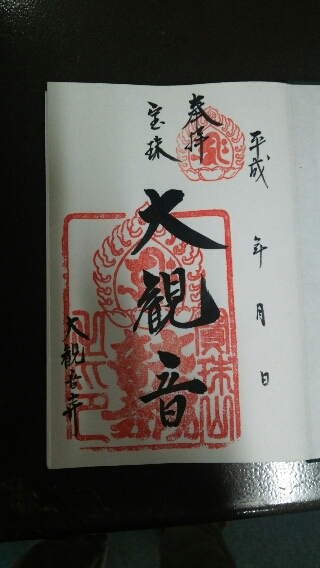 平成 年 月 日
奉拝
宝珠
大観音
大観音寺
寳珠山